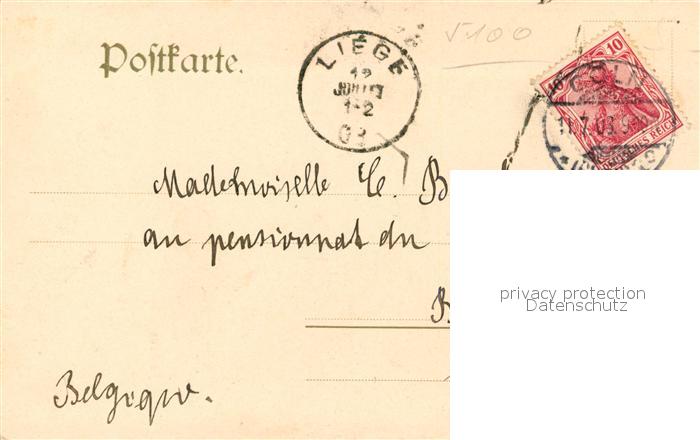 V100
Postkarte.
LIÈGE
12
JUILLET
1-2
03
10
CÖLN
11.7.03.9-10
DEUTSCHES REICH
Mademoiselle C. B
au pensionnat du
B
Belgique.
privacy protection
Datenschutz